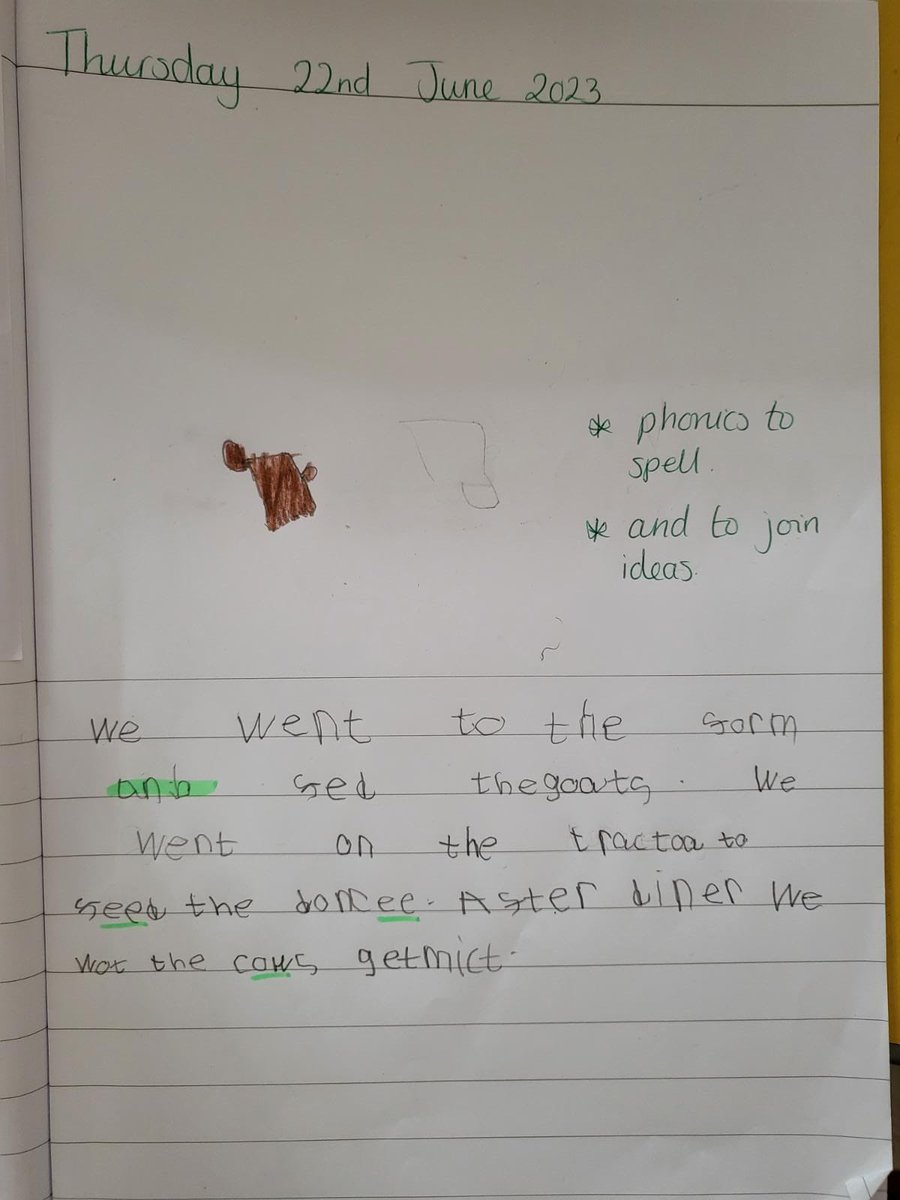 Thursday 22nd June 2023
* phonics to
spell.
* and to join
ideas.
We went to the farm
anb fed thegoats. We
went on the tractoa to
feed the doncee. After diner we
wot the cows getmict.